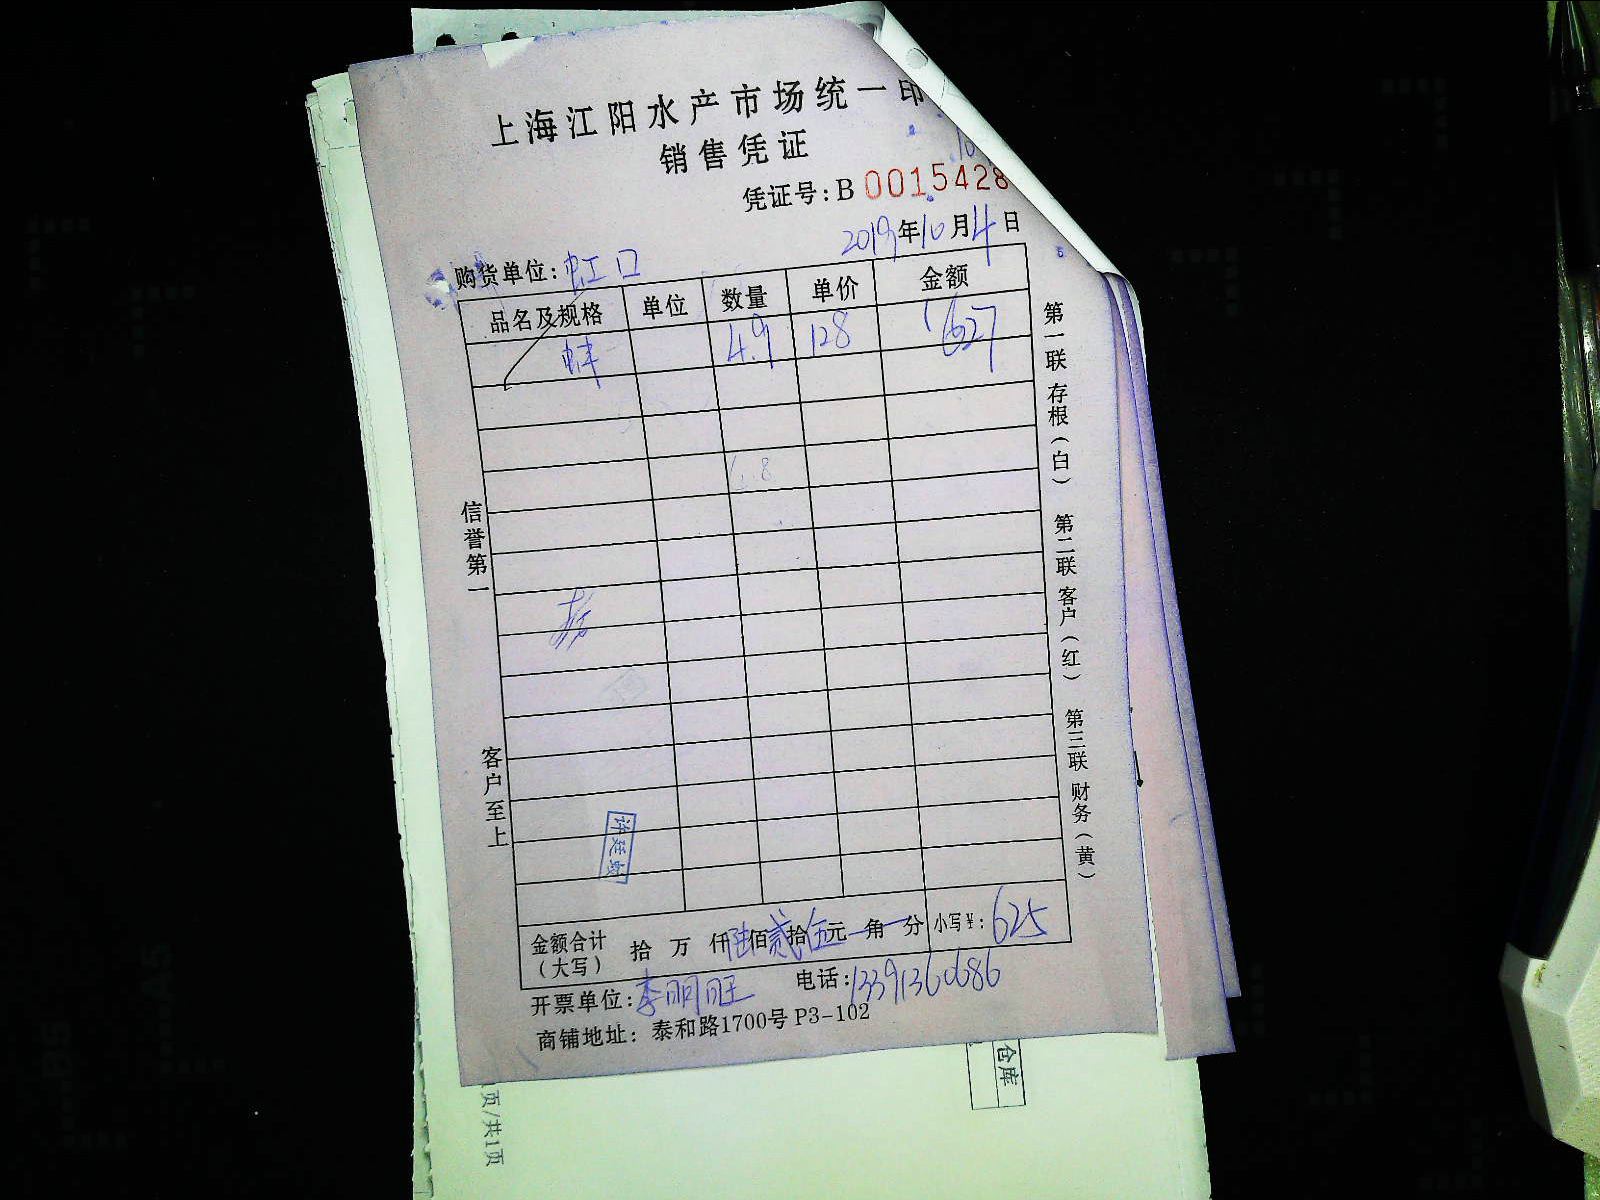 上海江阳水产市场统一印
销售凭证
凭证号:B 0015428
2019年10月4日
购货单位:虹口
品名及规格 单位 数量 单价 金额
4.9 128 627
6.8
信誉第一
客户至上
第一联 存根(白) 第二联 客户(红) 第三联 财务(黄)
金额合计(大写) 拾 万 仟陆佰贰拾伍元 角 分 小写¥:625
开票单位:李明旺 电话:13391360686
商铺地址: 泰和路1700号 P3-102
仓库
页/共1页